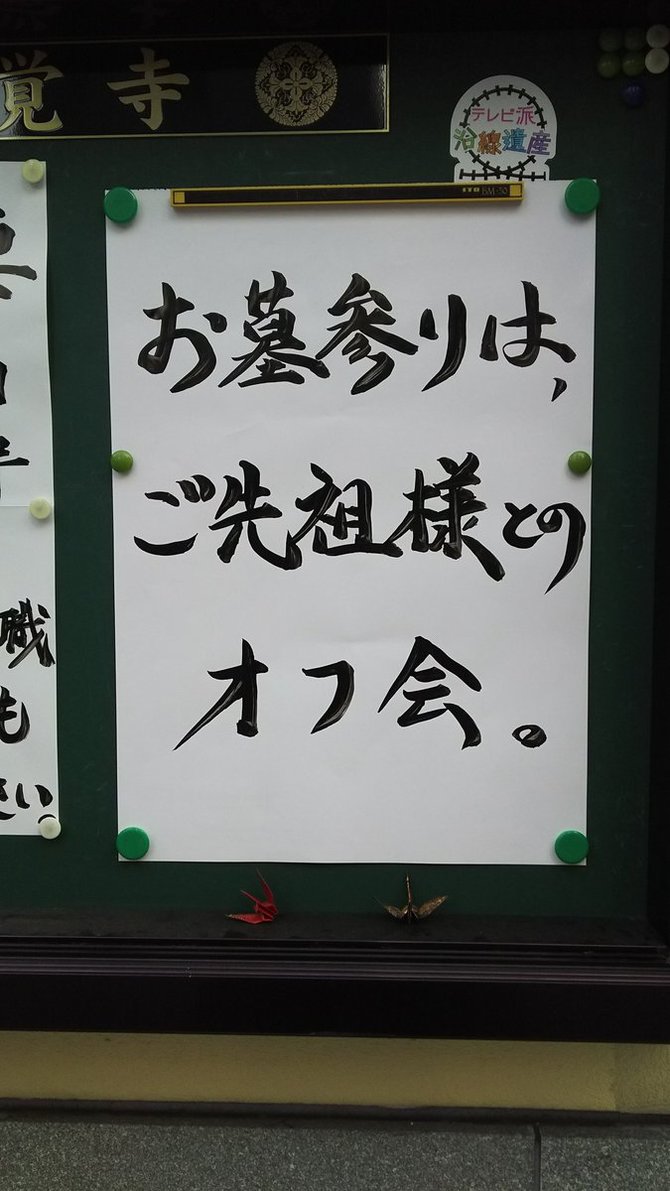 覚寺
テレビ派
沿線遺産
ITO BM-30
お墓参りは、
ご先祖様との
オフ会。
職
も
さい。